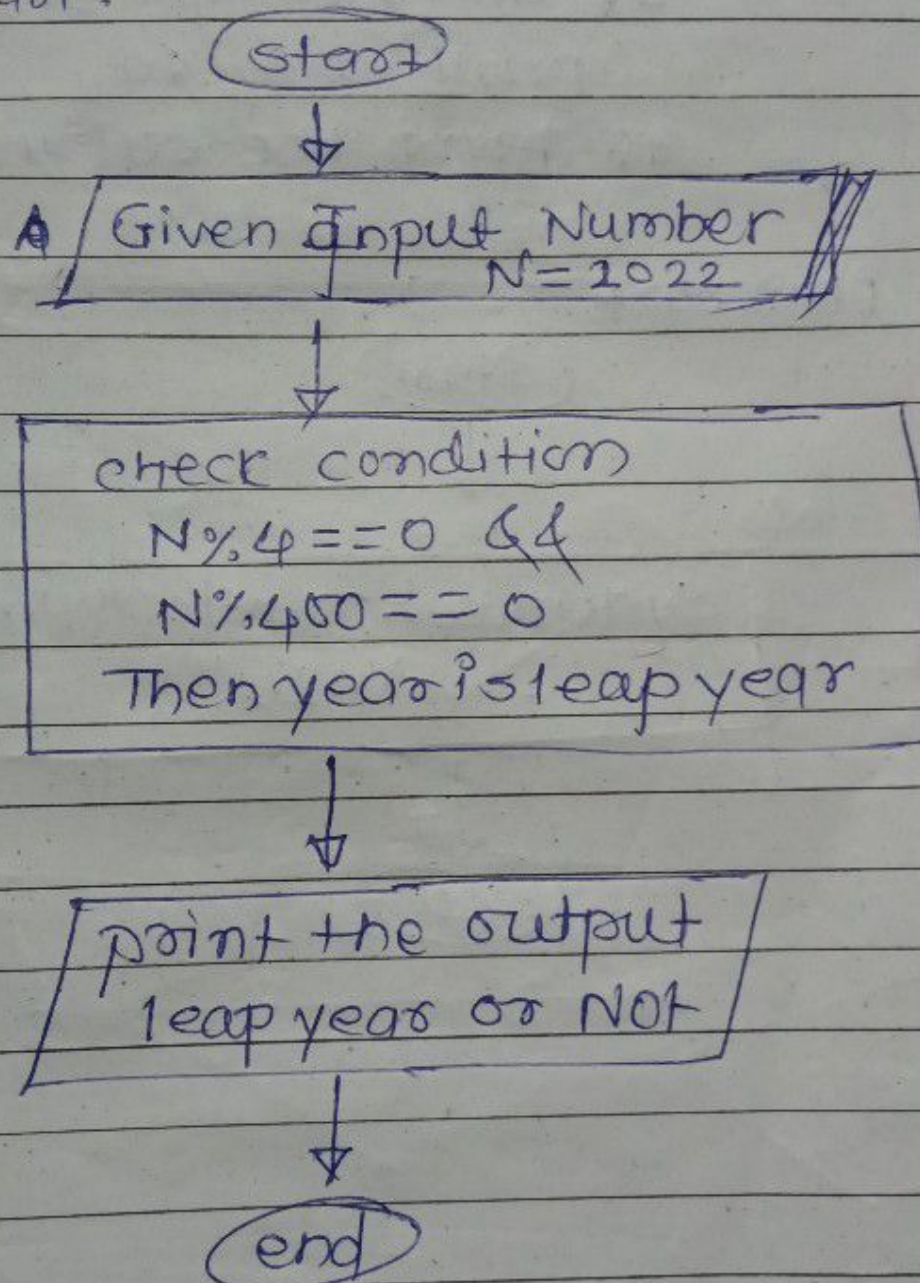 start
Given Input Number
N=2022
check condition
N%4==0 &&
N%400==0
Then year is leap year
print the output
leap year or NOt
end